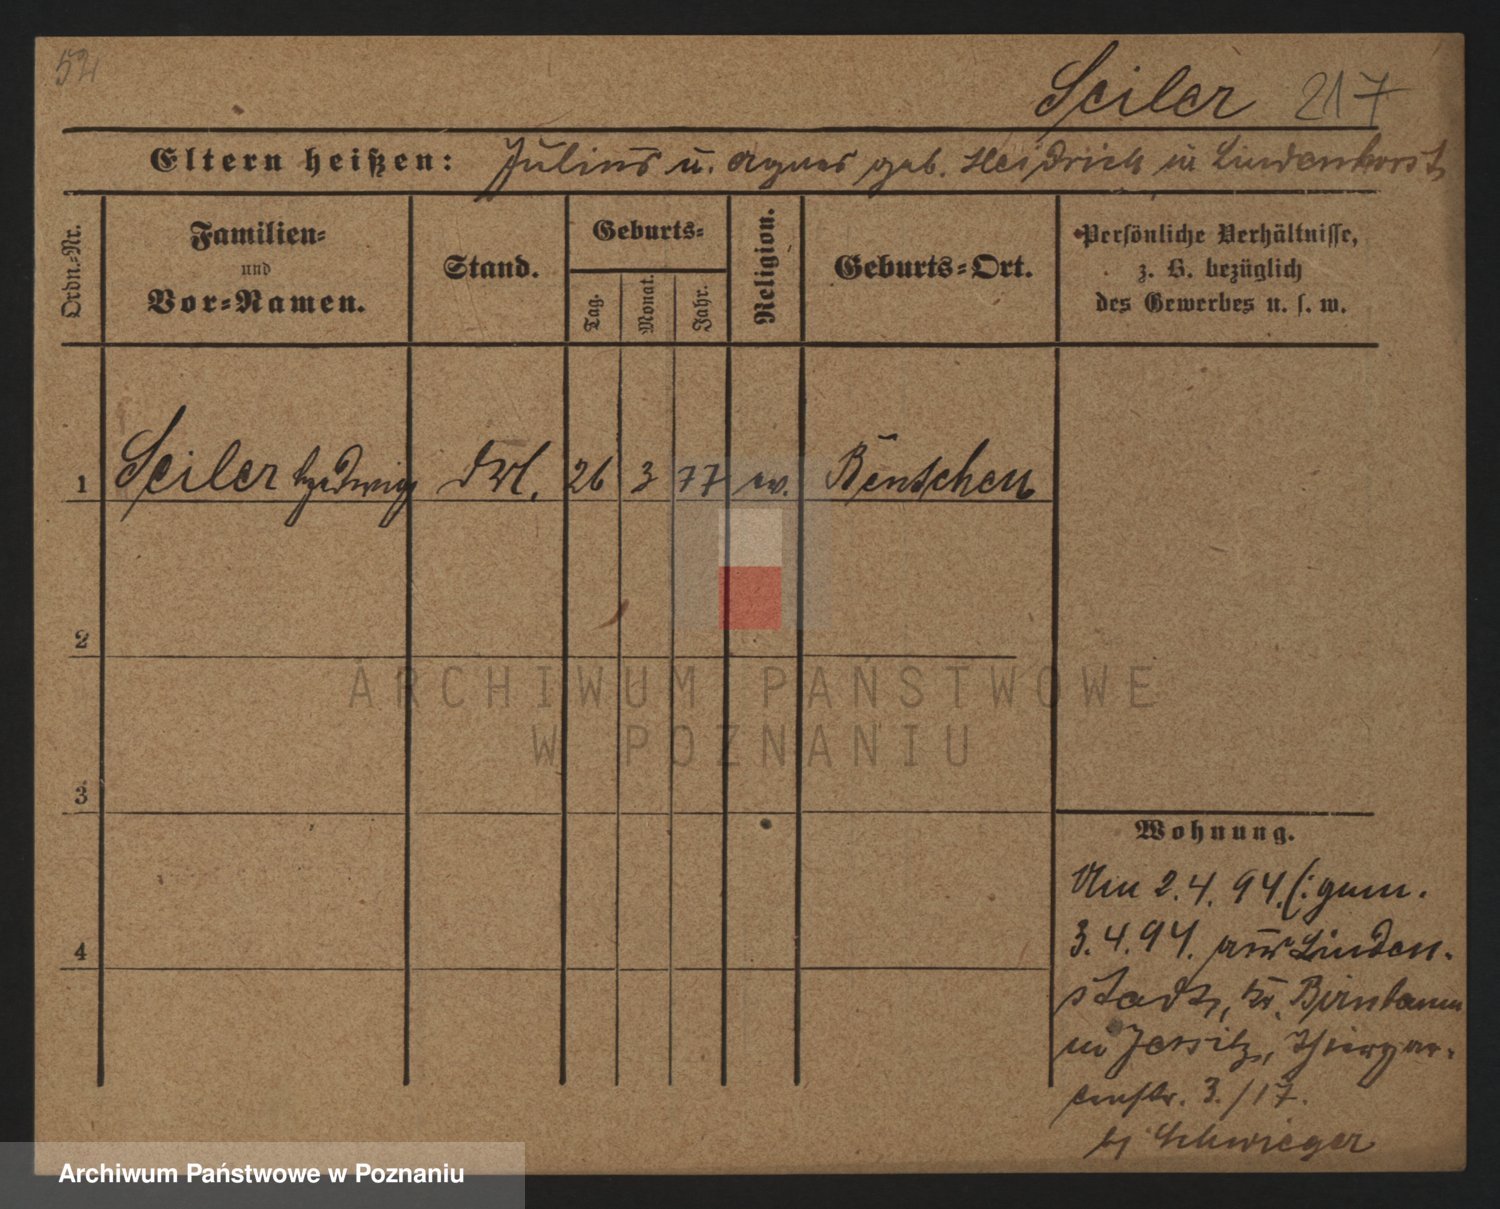 52
Seiler 217
Eltern heißen: Julius u. Agnes geb. Heidrich in Lindenhorst
Ordn.-Nr.
Familien-
und
Vor-Namen.
Stand.
Geburts-
Tag.
Monat.
Jahr.
Religion.
Geburts-Ort.
Persönliche Verhältnisse,
z. B. bezüglich
des Gewerbes u. s. w.
1 Seiler Hedwig 26 3 77 ev. Bentschen
2
3
4
Wohnung.
Am 2.4.94 (: gem.
3.4.94. aus Linden-
stadt, Kr. Birnbaum
in Jersitz, Thiergar-
tenstr. 3./17.
b/ Schwieger
ARCHIWUM PAŃSTWOWE
W POZNANIU
Archiwum Państwowe w Poznaniu